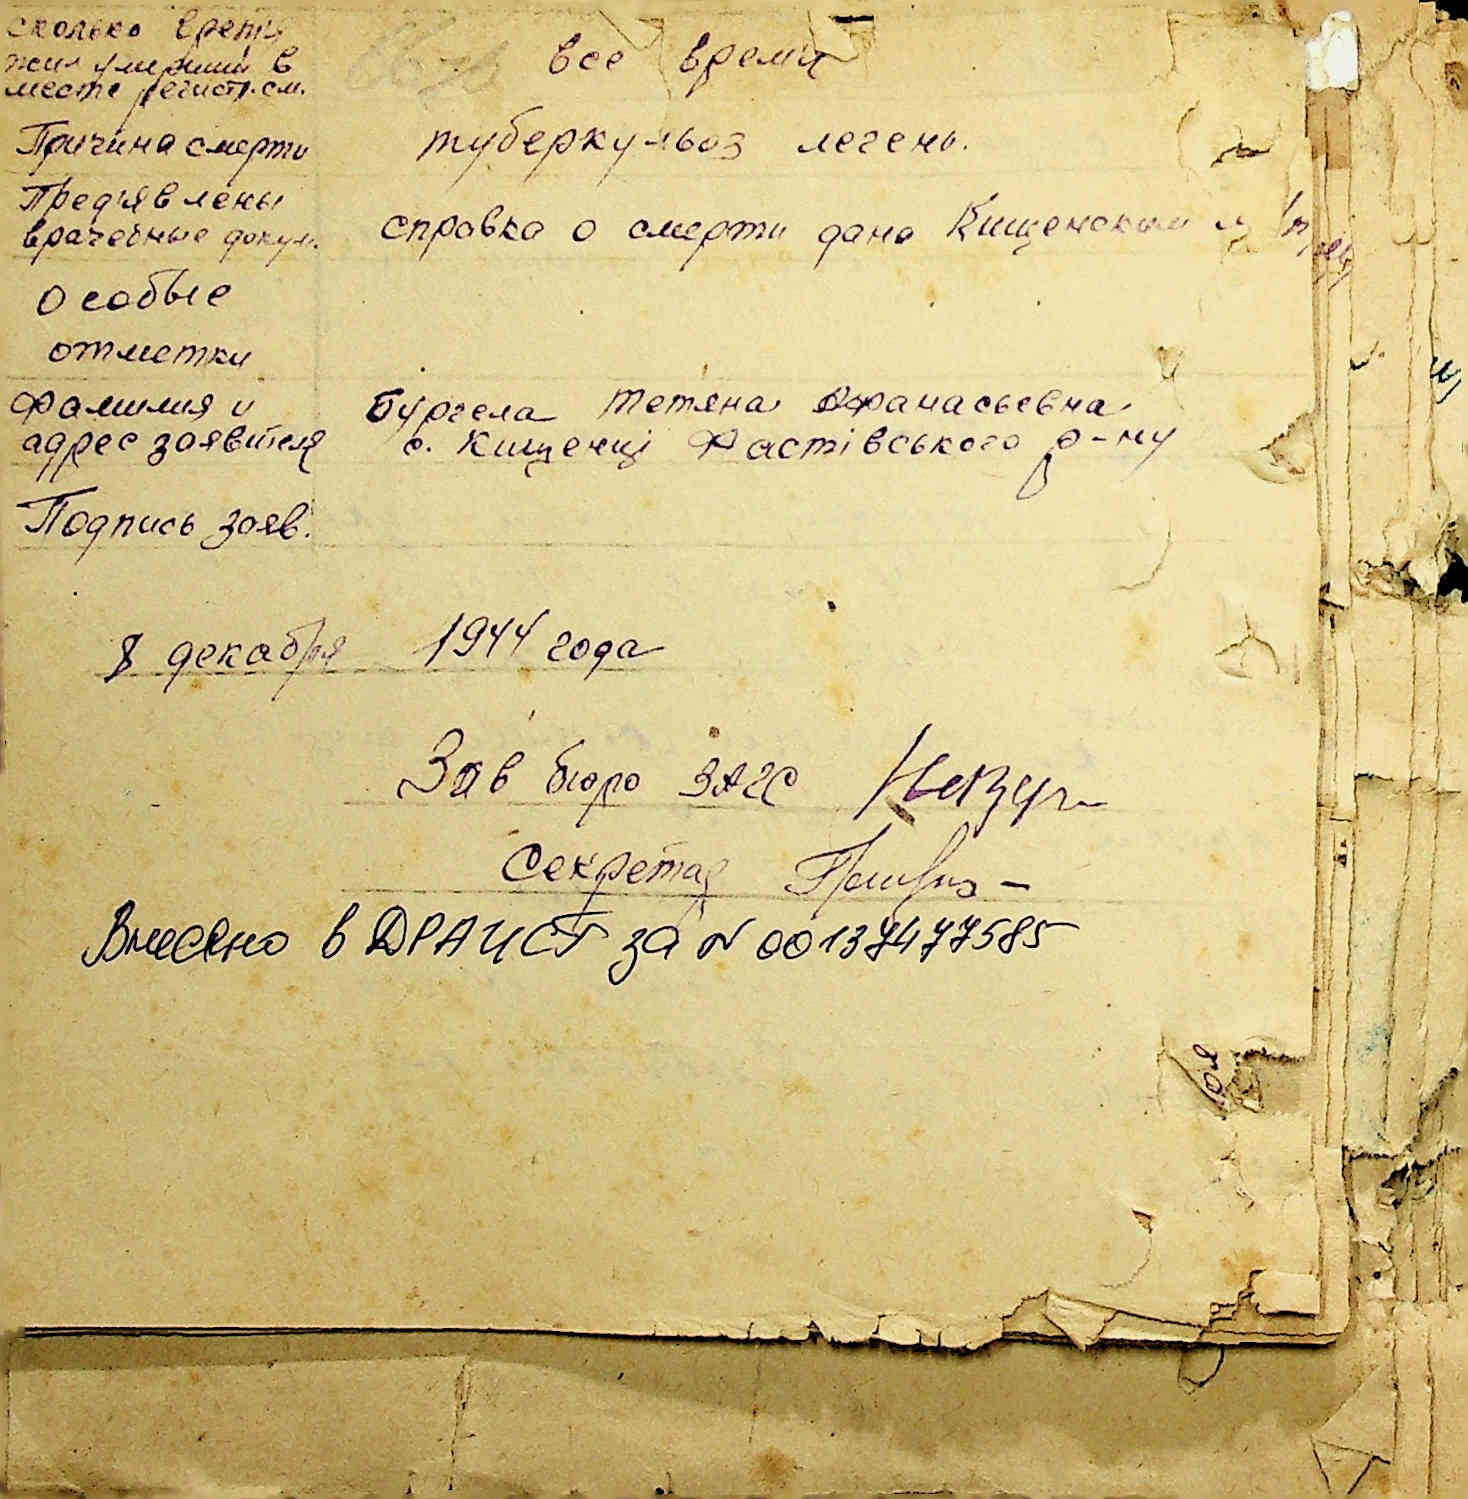 сколько время
жил умерший в
месте регистр. см.
все время
Причина смерти
туберкульоз легень.
Пред'явлены
врачебные докум.
справка о смерти дана Кищенским
Особые
отметки
Фамилия и
адрес заявителя
Бургела Тетяна Афанасьевна
с. Кищенці Фастівського р-ну
Подпись заяв.
8 декабря 1944 года
Зав бюро ЗАГС
Секретар
Внесено в ДРАЦСГ за N 00137477585